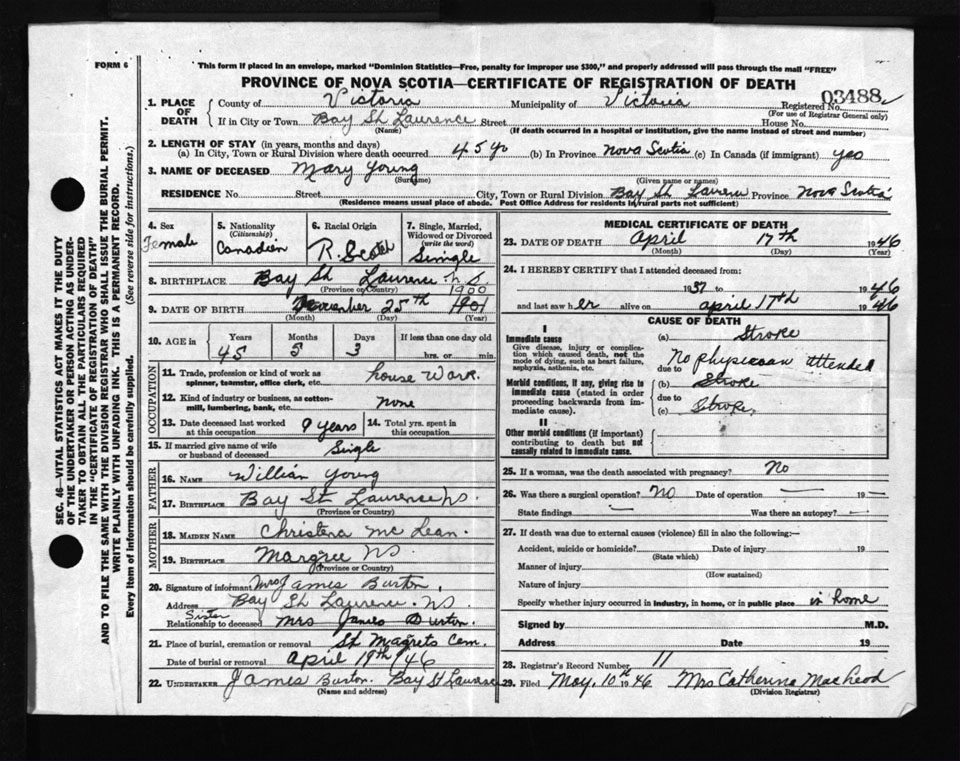 FORM 6
This form if placed in an envelope, marked "Dominion Statistics—Free, penalty for improper use $300," and properly addressed will pass through the mail "FREE"
PROVINCE OF NOVA SCOTIA—CERTIFICATE OF REGISTRATION OF DEATH
03488
1. PLACE OF DEATH County of Victoria Municipality of Victoria Registered No.
(For use of Registrar General only)
If in City or Town Bay St Laurence Street House No.
(Name) (If death occurred in a hospital or institution, give the name instead of street and number)
2. LENGTH OF STAY (in years, months and days)
(a) In City, Town or Rural Division where death occurred 45 yo (b) In Province Nova Scotia (c) In Canada (if immigrant) yes
3. NAME OF DECEASED Mary Young
(Surname) (Given name or names)
RESIDENCE No Street City, Town or Rural Division Bay St Laurence Province Nova Scotia
(Residence means usual place of abode. Post Office Address for residents in rural parts not sufficient)
SEC. 46—VITAL STATISTICS ACT MAKES IT THE DUTY
OF THE UNDERTAKER OR PERSON ACTING AS UNDER-
TAKER TO OBTAIN ALL THE PARTICULARS REQUIRED
IN THE "CERTIFICATE OF REGISTRATION OF DEATH"
AND TO FILE THE SAME WITH THE DIVISION REGISTRAR WHO SHALL ISSUE THE BURIAL PERMIT.
WRITE PLAINLY WITH UNFADING INK. THIS IS A PERMANENT RECORD.
Every item of information should be carefully supplied. (See reverse side for instructions.)
4. Sex Female
5. Nationality (Citizenship) Canadian
6. Racial Origin R. Scotch
7. Single, Married, Widowed or Divorced (write the word) Single
8. BIRTHPLACE Bay St Laurence N S
(Province or Country)
1900
9. DATE OF BIRTH November 25th 1901
(Month) (Day) (Year)
10. AGE in Years Months Days If less than one day old
45 5 3 hrs. or min.
OCCUPATION
11. Trade, profession or kind of work as spinner, teamster, office clerk, etc. house Work.
12. Kind of industry or business, as cotton-mill, lumbering, bank, etc. none
13. Date deceased last worked at this occupation 9 years 14. Total yrs. spent in this occupation
15. If married give name of wife or husband of deceased Single
FATHER
16. NAME Willian Young
17. BIRTHPLACE Bay St Laurence NS.
(Province or Country)
MOTHER
18. MAIDEN NAME Christena Mc Lean.
19. BIRTHPLACE Margree NS
(Province or Country)
20. Signature of informant Mrs James Burton,
Address Bay St Laurence. NS
Sister
Relationship to deceased Mrs James Burton.
21. Place of burial, cremation or removal St Magrets Cem.
Date of burial or removal April 19th 46
22. UNDERTAKER James Burton. Bay St Laurance
(Name and address)
MEDICAL CERTIFICATE OF DEATH
23. DATE OF DEATH April 17th 1946
(Month) (Day) (Year)
24. I HEREBY CERTIFY that I attended deceased from:
1937 to 1946
and last saw her alive on april 17th 1946
CAUSE OF DEATH
I
Immediate cause
Give disease, injury or complication which caused death, not the mode of dying, such as heart failure, asphyxia, asthenia, etc.
(a) Stroke
due to No physician attended
Morbid conditions, if any, giving rise to immediate cause (stated in order proceeding backwards from immediate cause).
(b) Stroke
due to
(c) Stroke,
II
Other morbid conditions (if important) contributing to death but not causally related to immediate cause.
25. If a woman, was the death associated with pregnancy? No
26. Was there a surgical operation? NO Date of operation — 19 —
State findings — Was there an autopsy? —
27. If death was due to external causes (violence) fill in also the following:—
Accident, suicide or homicide? Date of injury 19
(State which)
Manner of injury
(How sustained)
Nature of injury
Specify whether injury occurred in industry, in home, or in public place in home
Signed by M.D.
Address Date 19
28. Registrar's Record Number 11
29. Filed May, 10th 1946 Mrs Catherina MacLeod
(Division Registrar)